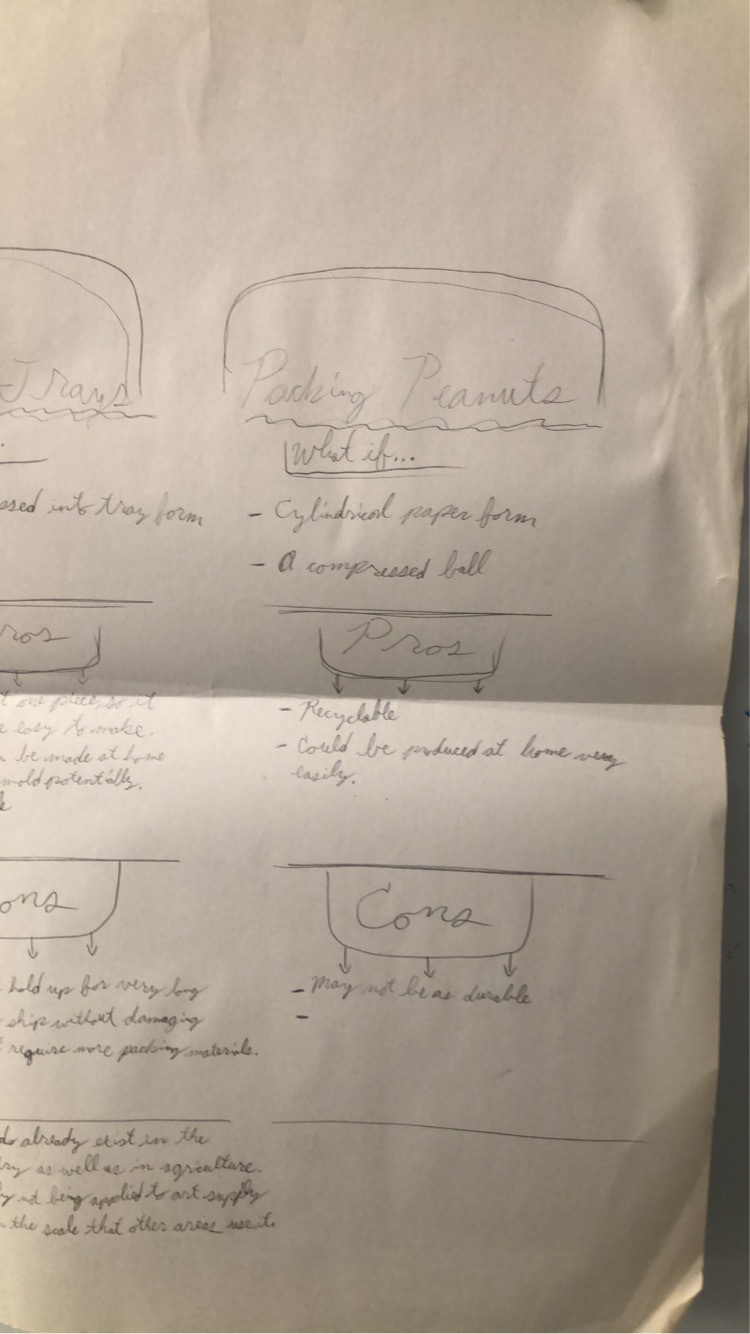 Trays
ssed into tray form
ros
t one piece, so it
e easy to make.
be made at home
mold potentially.
ons
hold up for very long
ship without damaging
t require more packing materials.
do already exist in the
ry as well as in agriculture.
y not being applied to art supply
n the scale that other areas use it.
Packing Peanuts
What if...
- Cylindrical paper form
- A compressed ball
Pros
- Recyclable
- Could be produced at home very
easily.
Cons
- May not be as durable
-